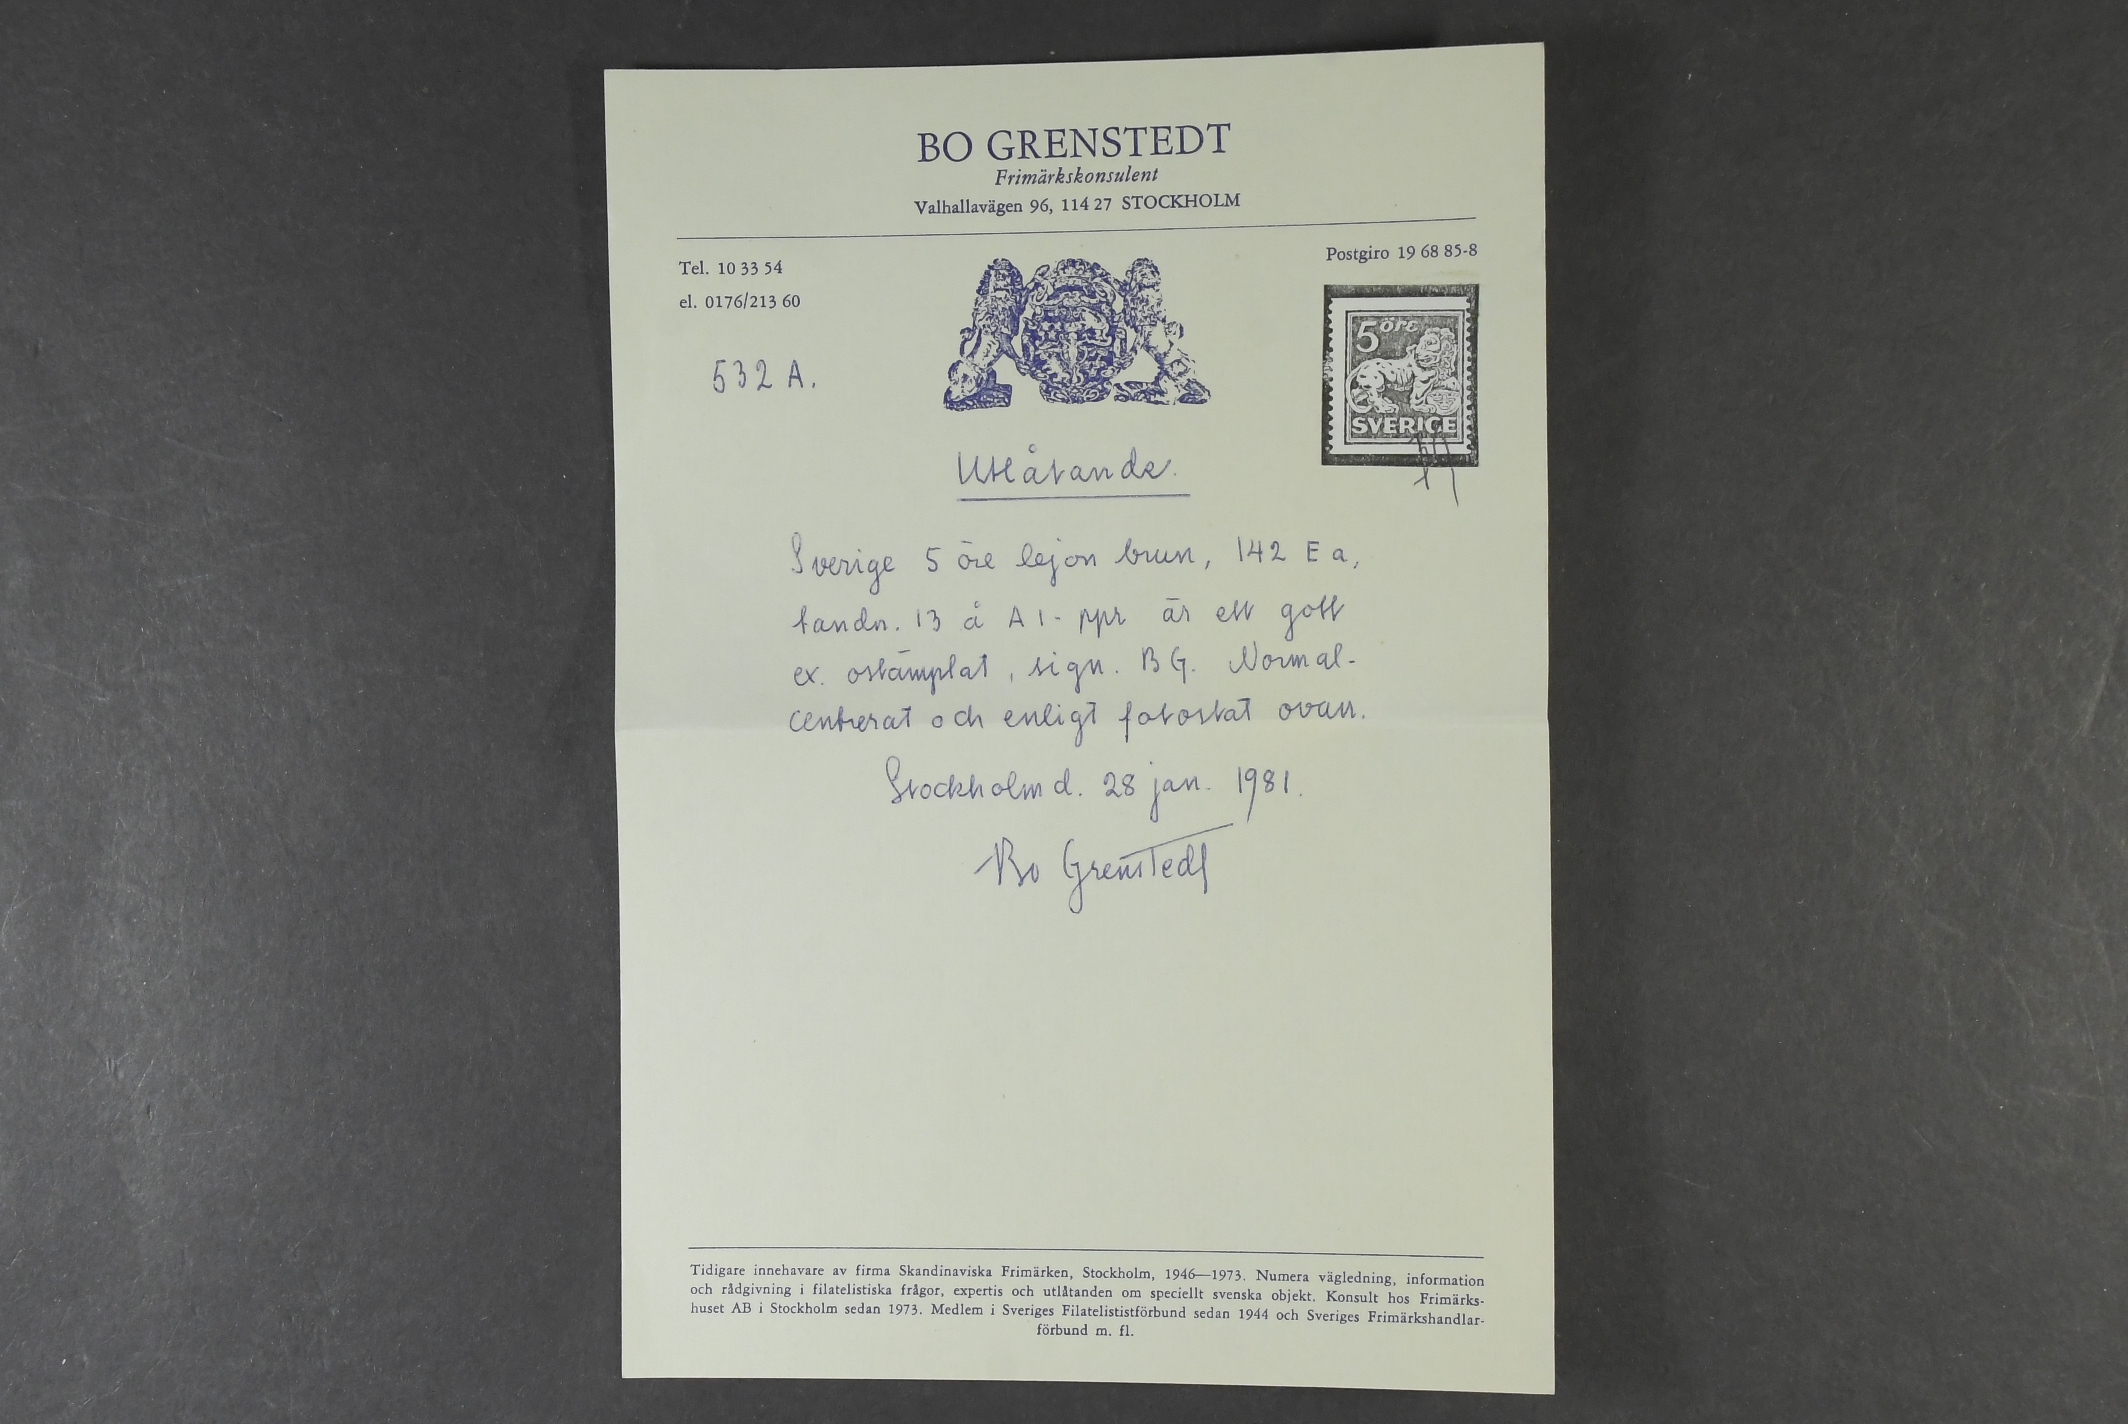 BO GRENSTEDT
Frimärkskonsulent
Valhallavägen 96, 114 27 STOCKHOLM
Tel. 10 33 54
el. 0176/213 60
Postgiro 19 68 85-8
5 öre
SVERIGE
532 A.
Utlåtande.
Sverige 5 öre lejon brun, 142 E a,
tandn. 13 å A 1-ppr är ett gott
ex. ostämplat, sign. BG. Normal-
centrerat och enligt fotostat ovan.
Stockholm d. 28 jan. 1981.
Bo Grenstedt
Tidigare innehavare av firma Skandinaviska Frimärken, Stockholm, 1946—1973. Numera vägledning, information
och rådgivning i filatelistiska frågor, expertis och utlåtanden om speciellt svenska objekt. Konsult hos Frimärks-
huset AB i Stockholm sedan 1973. Medlem i Sveriges Filatelististförbund sedan 1944 och Sveriges Frimärkshandlar-
förbund m. fl.